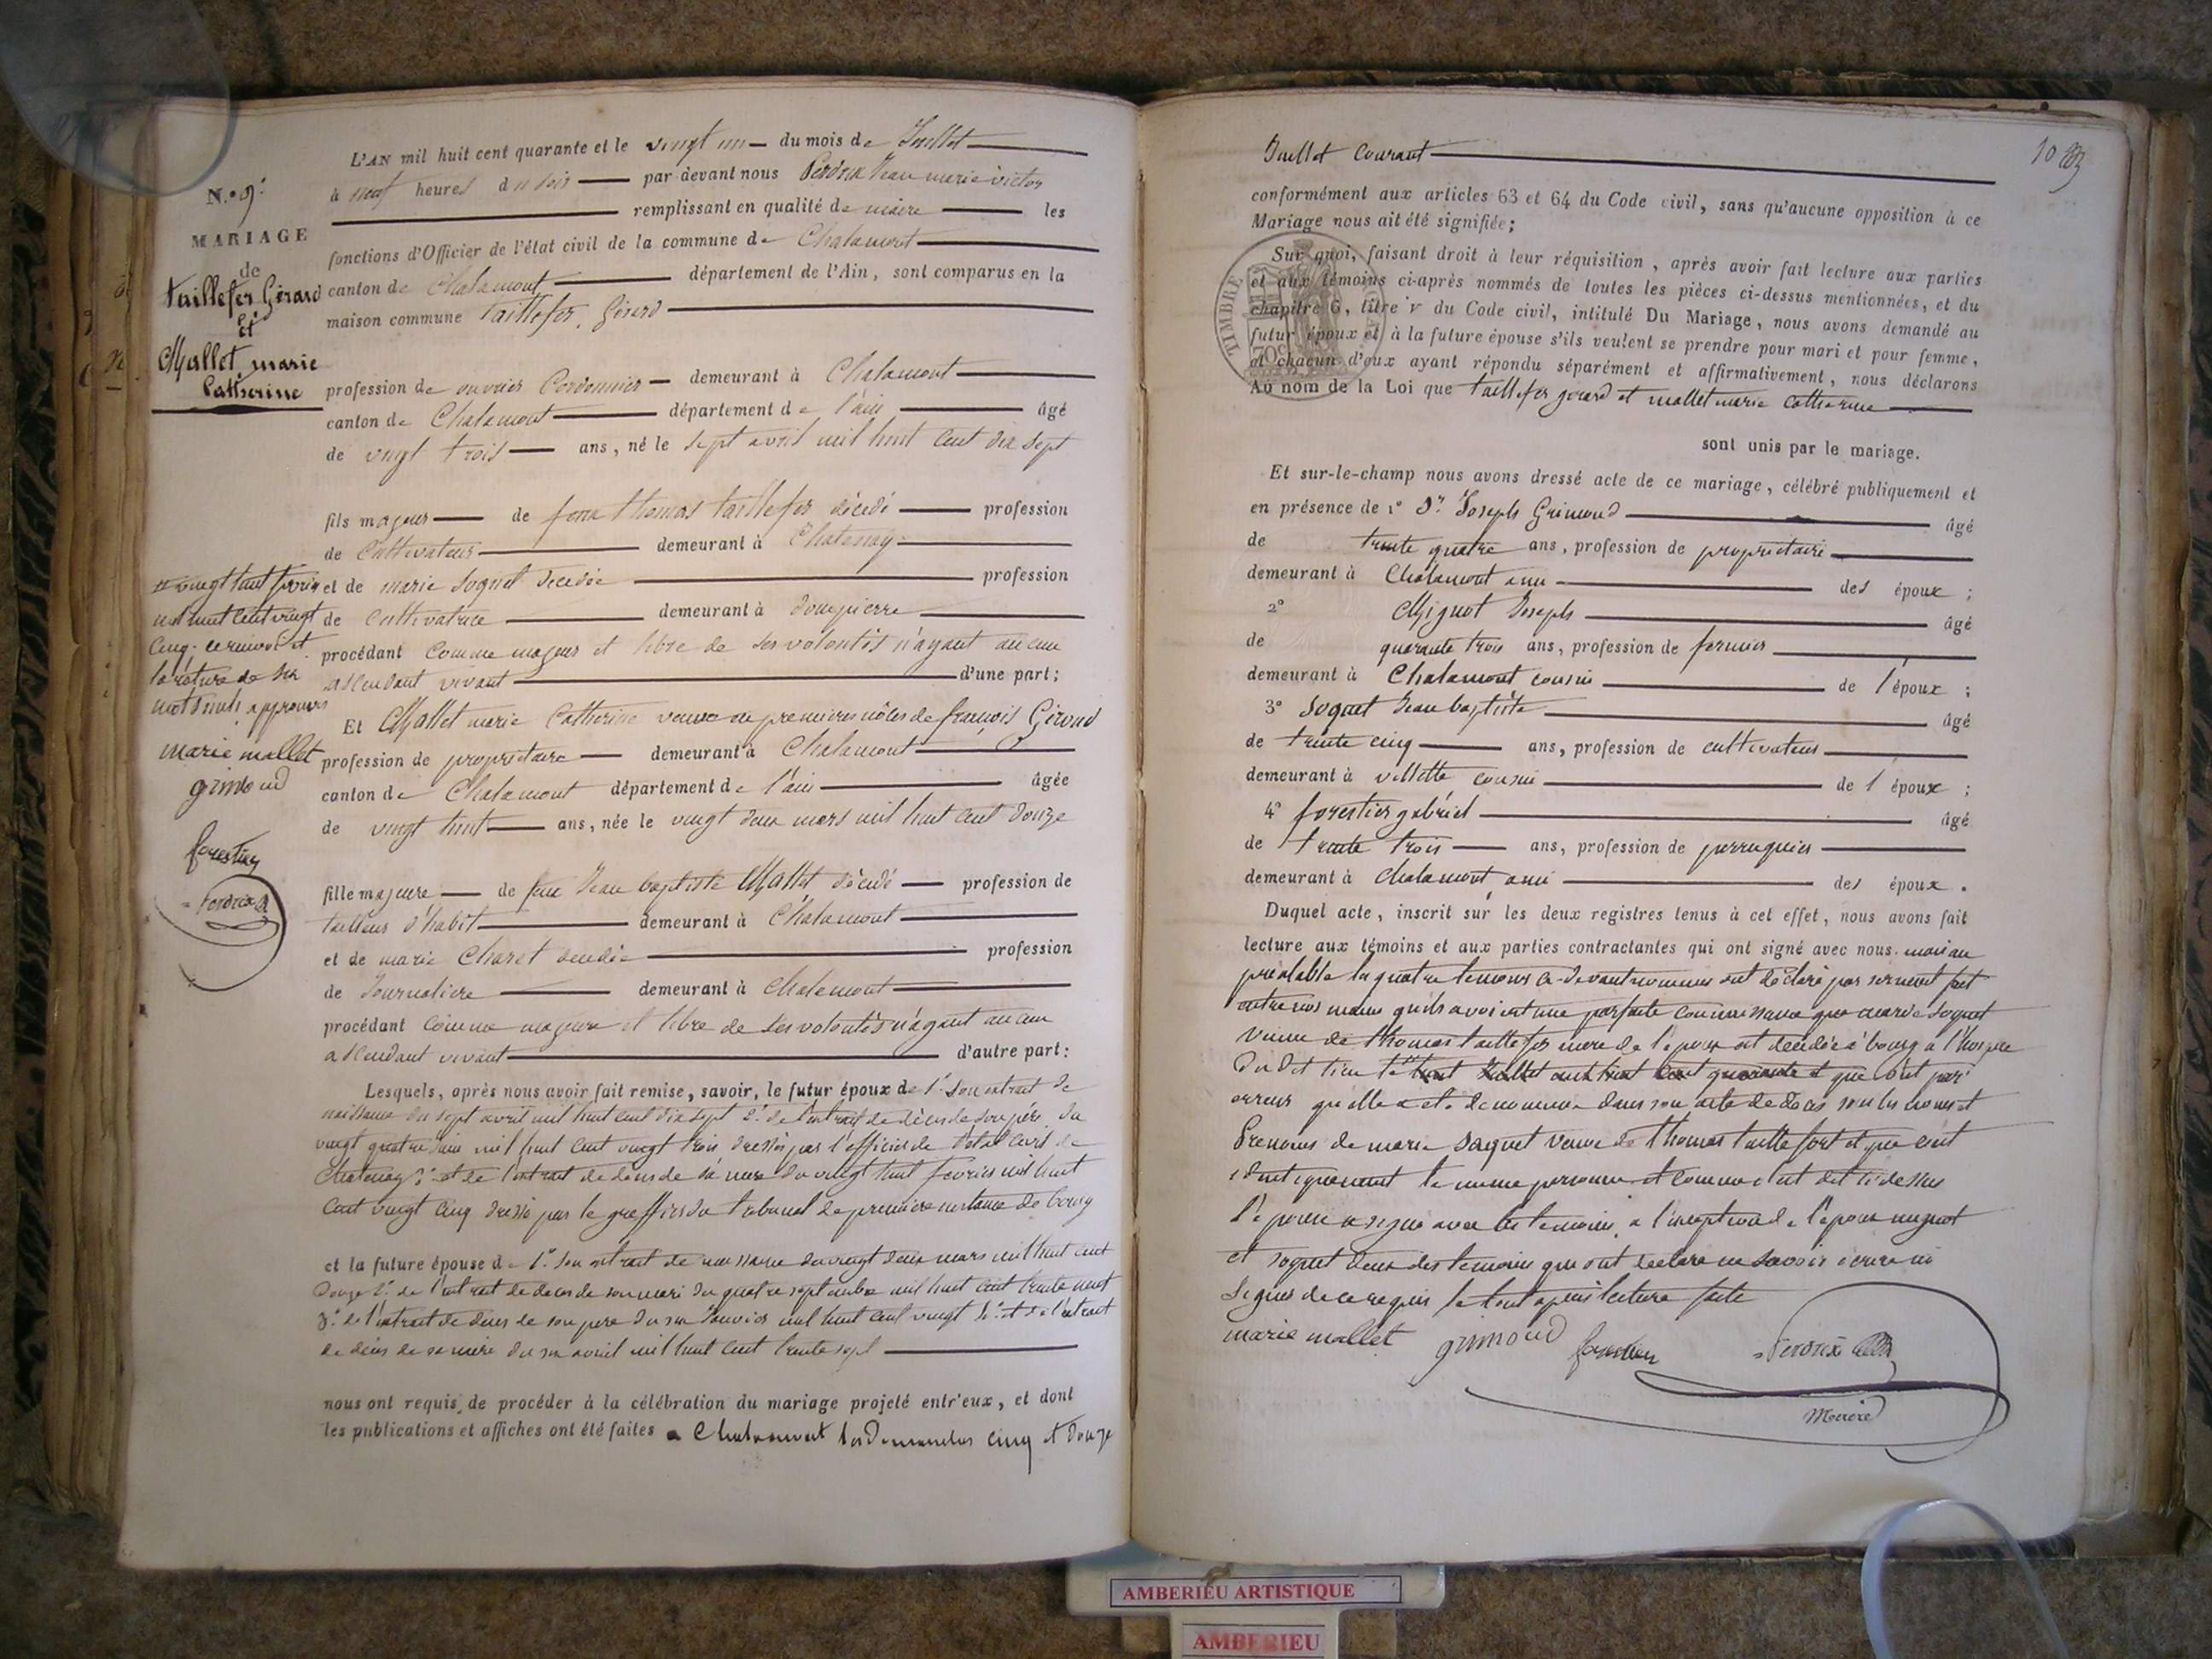 N.° 9.
MARIAGE
de
taillefer Gérard
et
Mallet, marie
Catherine
L'AN mil huit cent quarante et le vingt un du mois de Juillet
à neuf heures du soir par devant nous Perdrix Jean marie victor
remplissant en qualité de maire les
fonctions d'Officier de l'état civil de la commune de Chalamont
canton de Chalamont département de l'Ain, sont comparus en la
maison commune taillefer, Gérard
profession de ouvrier Cordonnier demeurant à Chalamont
canton de Chalamont département de l'ain âgé
de vingt trois ans, né le sept avril mil huit cent dix sept
fils majeur de feu thomas taillefer décédé profession
de Cultivateur demeurant à Chatenay
et de marie soquet décédée profession
de Cultivatrice demeurant à dompierre
procédant comme majeur et libre de ses volontés n'ayant aucun
ascendant vivant d'une part;
Et Mallet marie Catherine veuve en premieres nôces de françois Girond
profession de propriétaire demeurant à Chalamont
canton de Chalamont département de l'ain âgée
de vingt huit ans, née le vingt deux mars mil huit cent douze
fille majeure de feu Jean baptiste Mallet décédé profession de
tailleur d'habit demeurant à Chalamont
et de marie Charet décédée profession
de Journaliere demeurant à Chalamont
procédant comme majeure et libre de ses volontés n'ayant aucun
ascendant vivant d'autre part:
Lesquels, après nous avoir fait remise, savoir, le futur époux de 1° son extrait de
naissance du sept avril mil huit cent dix sept 2° de l'extrait de décès de son père du
vingt quatre juin mil huit cent vingt trois dressés par l'officier de l'état civil de
Chatenay 3° et de l'extrait de décès de sa mère du vingt huit fevrier mil huit
cent vingt cinq dressé par le greffier du tribunal de première instance de bourg
et la future épouse de 1° son extrait de naissance du vingt deux mars mil huit cent
douze 2° de l'extrait de décès de son mari du quatre septembre mil huit cent trente neuf
3° de l'extrait de décès de son père du six Janvier mil huit cent vingt et de l'extrait
de décès de sa mère du six avril mil huit cent trente sept
nous ont requis de procéder à la célébration du mariage projeté entr'eux, et dont
les publications et affiches ont été faites a Chalamont les dimanches cinq et douze
vingt huit fevrier
mil huit cent vingt
cinq. ce renvoi et
la rature de six
mots nuls approuvés
marie mallet
grimoud
forestier
Perdrix
10
Juillet Courant
conformément aux articles 63 et 64 du Code civil, sans qu'aucune opposition à ce
Mariage nous ait été signifiée;
TIMBRE
Sur quoi, faisant droit à leur réquisition, après avoir fait lecture aux parties
et aux témoins ci-après nommés de toutes les pièces ci-dessus mentionnées, et du
chapitre 6, titre v du Code civil, intitulé Du Mariage, nous avons demandé au
futur époux et à la future épouse s'ils veulent se prendre pour mari et pour femme,
et chacun d'eux ayant répondu séparément et affirmativement, nous déclarons
Au nom de la Loi que taillefer gerard et mallet marie catherine
sont unis par le mariage.
Et sur-le-champ nous avons dressé acte de ce mariage, célébré publiquement et
en présence de 1° Sr. Joseph Grimoud âgé
de trente quatre ans, profession de propriétaire
demeurant à Chalamont ami des époux;
2° Mignot Joseph âgé
de quarante trois ans, profession de fermier
demeurant à Chalamont cousin de l'époux;
3° Soquet Jean baptiste âgé
de trente cinq ans, profession de cultivateur
demeurant à villette cousin de l'époux;
4° forestier gabriel âgé
de trente trois ans, profession de perruquier
demeurant à Chalamont, ami des époux.
Duquel acte, inscrit sur les deux registres tenus à cet effet, nous avons fait
lecture aux témoins et aux parties contractantes qui ont signé avec nous. mais au
préalable les quatre temoins ci-devant nommés ont déclaré par serment fait
entre nos mains qu'ils avoient une parfaite connaissance que marie soquet
veuve de thomas taillefer mere de l'époux est décédée à bourg à l'hospice
dudit lieu le et que c'est par
erreur qu'elle a eté denommée dans son acte de décès sous les noms et
Prenoms de marie saquet veuve de thomas taillefort et que c'est
identiquement la meme personne et comme c'est dit ci dessus
l'épouse a signé avec les temoins, a l'exception de l'époux mignot
et soquet deux des temoins qui ont declaré ne savoir ecrire ni
signer de ce requis le tout apres lecture faite
marie mallet grimoud forestier Perdrix
Maire
AMBERIEU ARTISTIQUE
AMBERIEU